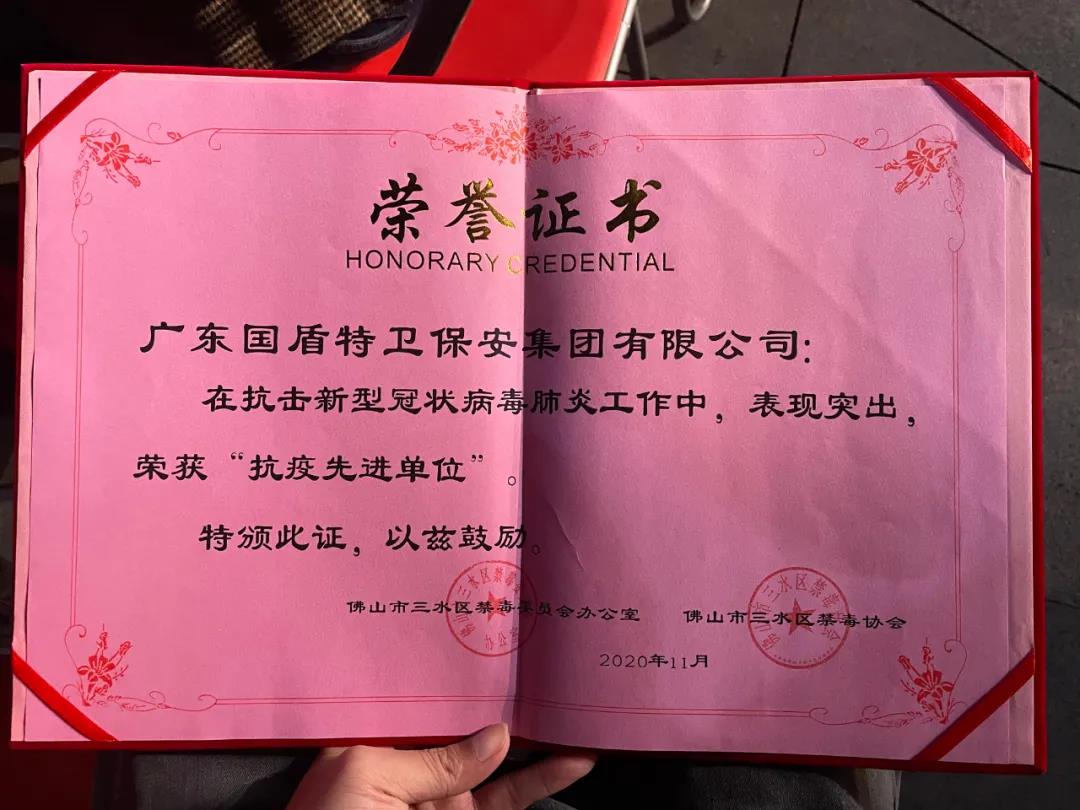 荣誉证书
HONORARY CREDENTIAL
广东国盾特卫保安集团有限公司:
在抗击新型冠状病毒肺炎工作中，表现突出，
荣获“抗疫先进单位”。
特颁此证，以兹鼓励。
佛山市三水区禁毒委员会办公室 佛山市三水区禁毒协会
2020年11月